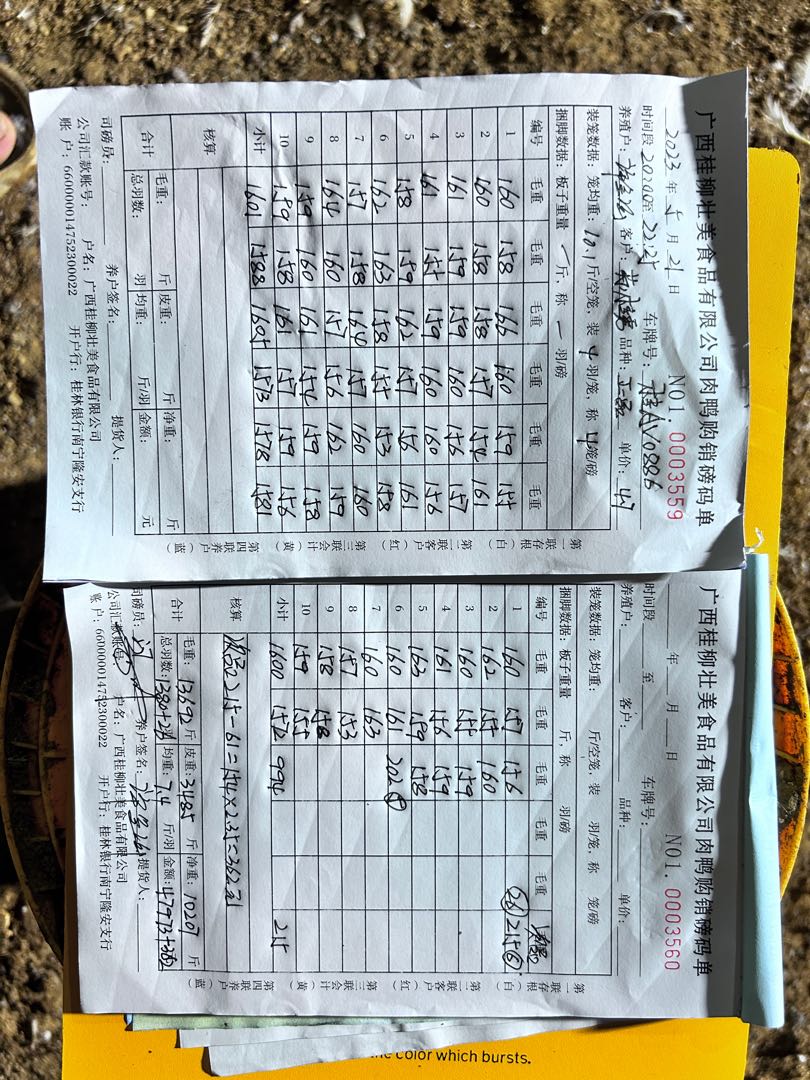 广西桂柳壮美食品有限公司肉鸭购销磅码单
NO1. 0003559
2023年5月21日
时间段 至22:25 车牌号: AV0886
养殖户: 客户: 品种: 单价: 4.7
装笼数据: 笼均重: 10.1斤/空笼, 装4羽/笼, 称4笼/磅
捆脚数据: 板子重量 一斤, 称一羽/磅
编号 毛重 毛重 毛重 毛重 毛重 毛重
1 160 158 166 160 159 155
2 160 158 158 157 154 161
3 161 159 159 160 156 157
4 161 155 159 160 160 156
5 158 159 162 157 156 161
6 162 163 158 155 153 158
7 157 158 164 157 160 160
8 164 160 157 156 162 159
9 159 160 161 154 159 158
10 159 158 161 157 159 156
小计 1601 1588 1605 1573 1578 1581
核算
合计 毛重: 斤 皮重: 斤 净重: 斤
总羽数: 羽 均重: 斤/羽 金额: 元
司磅员: 养户签名: 提货人:
公司汇款账号: 户名: 广西桂柳壮美食品有限公司
账 户: 660000014752300022 开户行: 桂林银行南宁隆安支行
第一联存根(白) 第二联客户(红) 第三联会计(黄) 第四联养户(蓝)
广西桂柳壮美食品有限公司肉鸭购销磅码单
NO1. 0003560
年 月 日
时间段 至 车牌号:
养殖户: 客户: 品种: 单价:
装笼数据: 笼均重: 斤/空笼, 装 羽/笼, 称 笼/磅
捆脚数据: 板子重量 斤, 称 羽/磅
编号 毛重 毛重 毛重 毛重 毛重
1 160 157 156 215
2 162 155 160
3 160 155 159
4 161 156 159
5 163 159 158
6 160 161 202
7 160 163
8 157 153
9 158 158
10 159 155
小计 1600 1572 994 215
核算 215-61=154×2.35=362元
合计 毛重: 13692斤 皮重: 3485斤 净重: 10207斤
总羽数: 1380+26 均重: 7.4斤/羽 金额: 47973+362
司磅员: 养户签名: 提货人:
公司汇款账号: 户名: 广西桂柳壮美食品有限公司
账 户: 660000014752300022 开户行: 桂林银行南宁隆安支行
第一联存根(白) 第二联客户(红) 第三联会计(黄) 第四联养户(蓝)
the color which bursts.